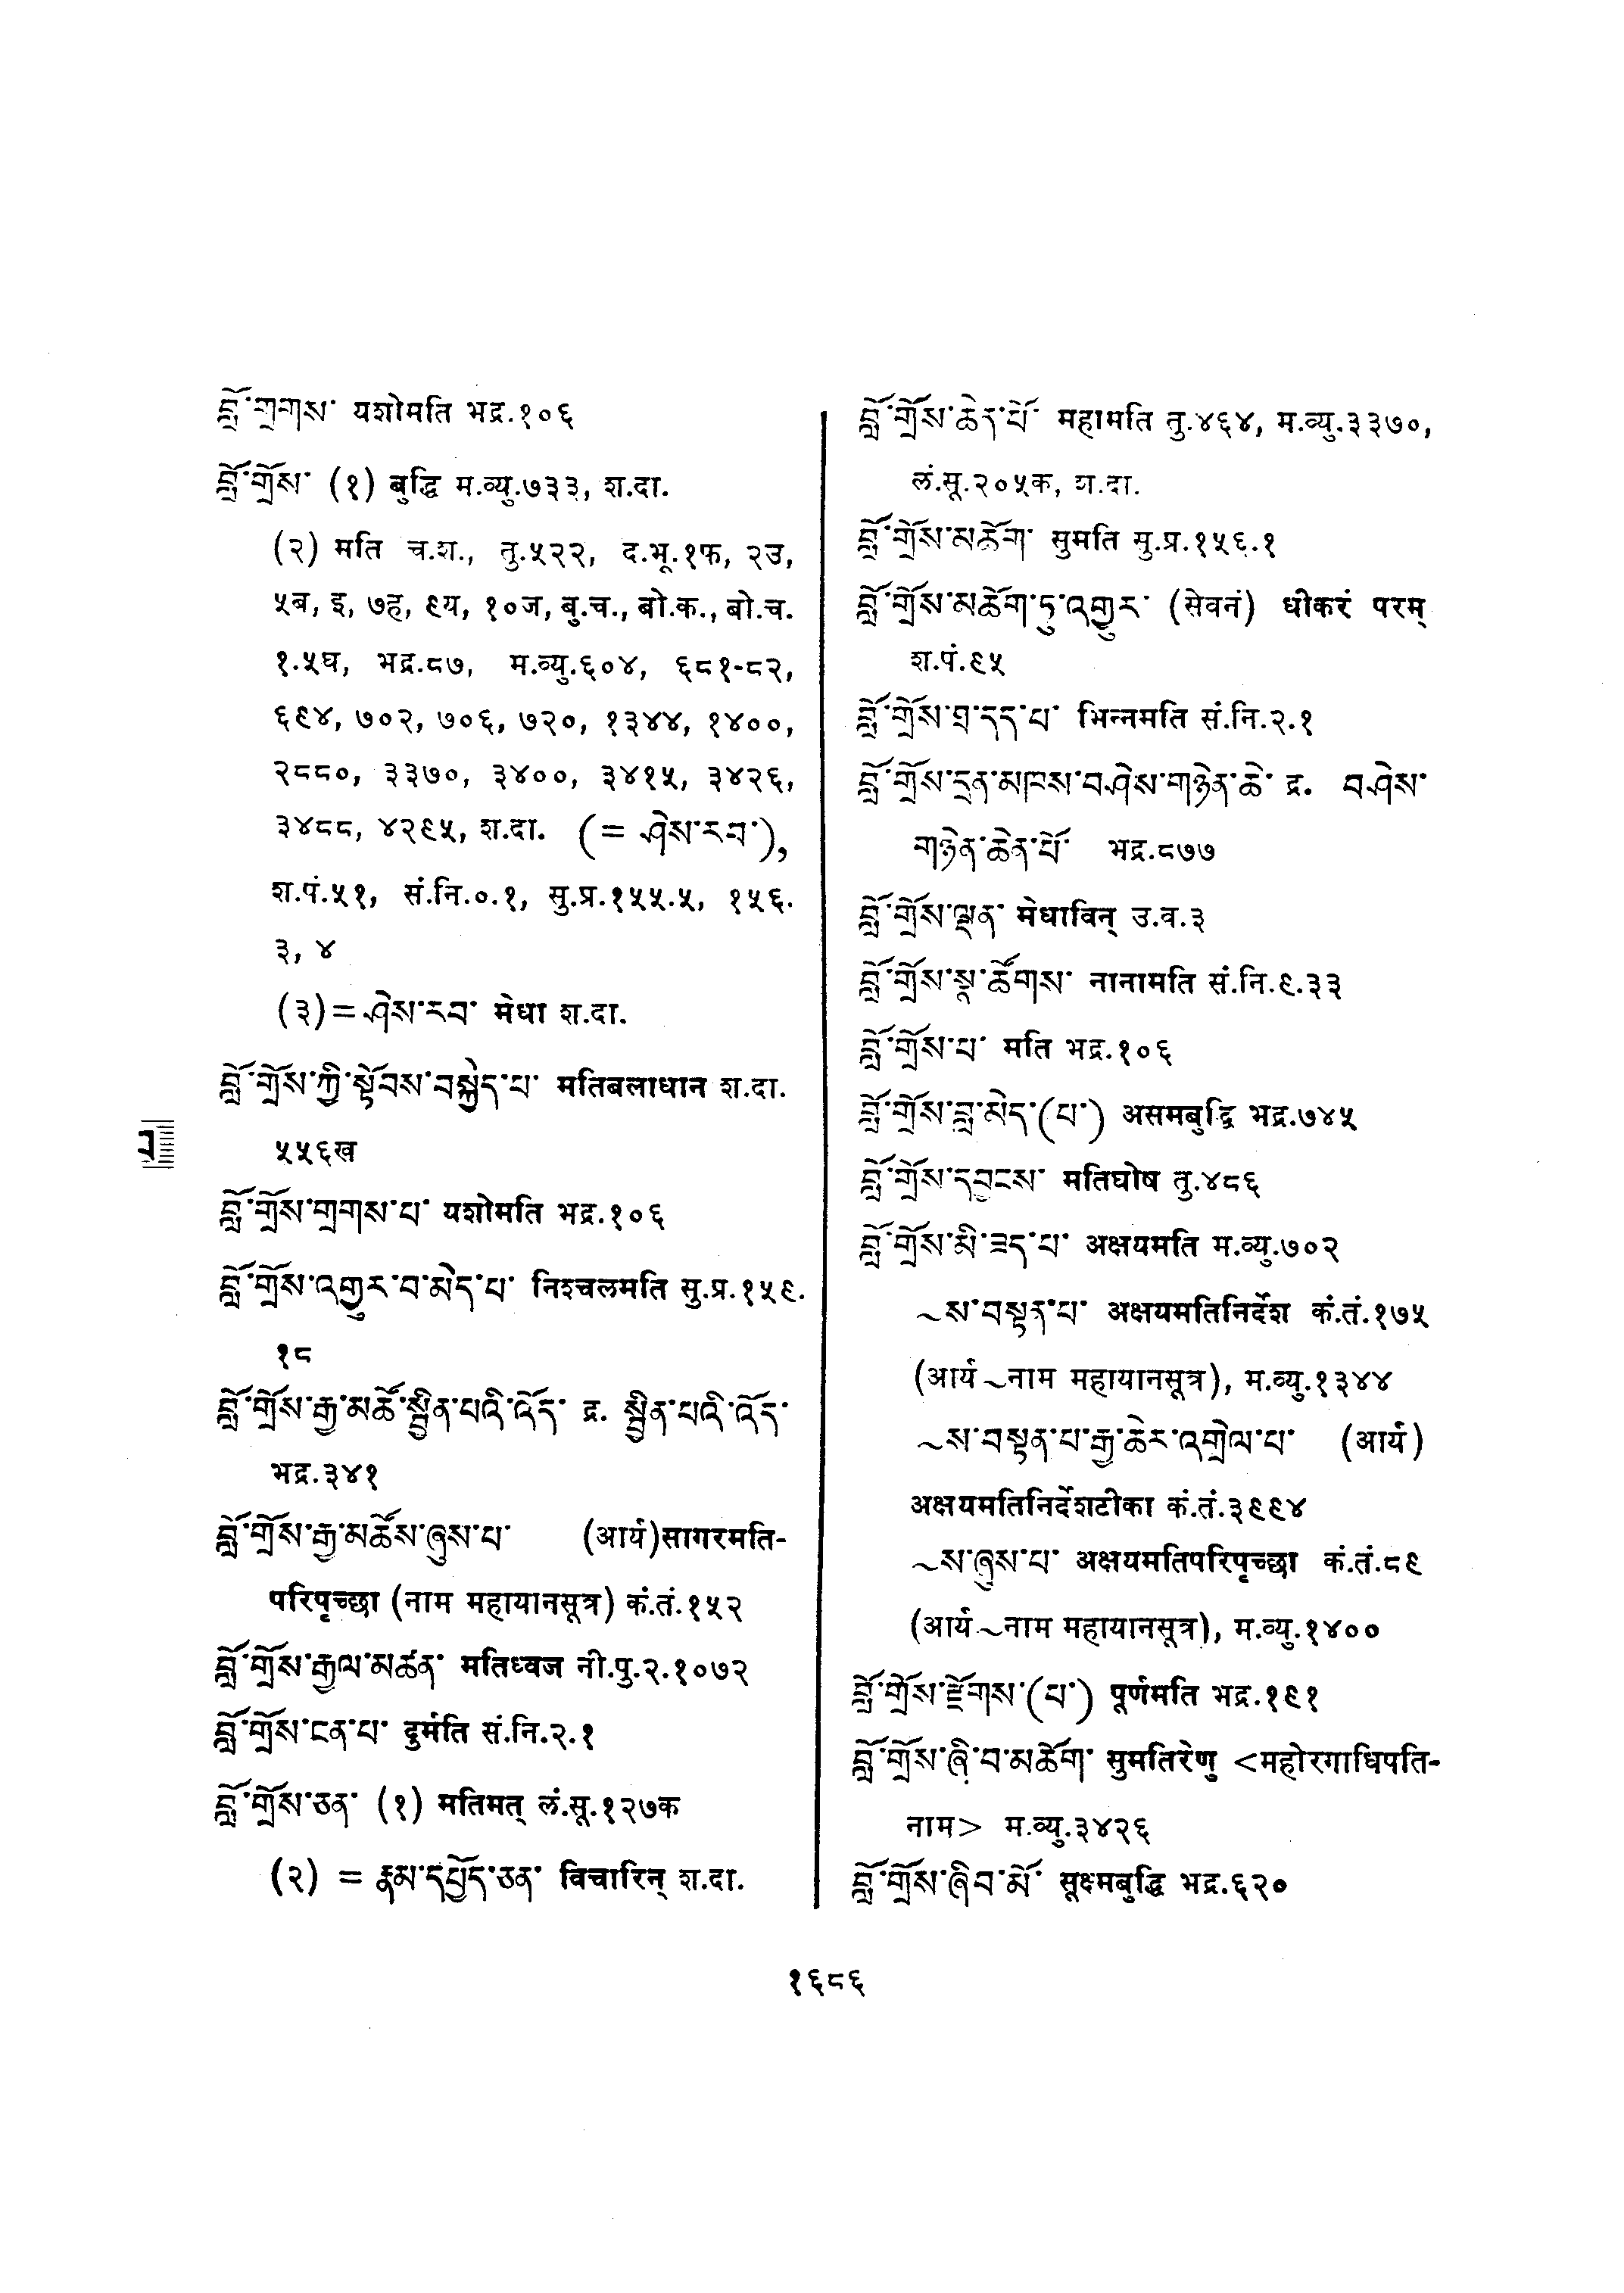 བློ་གྲགས་ यशोमति भद्र.१०६
བློ་གྲོས་ (१) बुद्धि म.व्यु.७३३, श.दा.
(२) मति च.श., तु.५२२, द.भू.१फ, २उ,
५ब, इ, ७ह, ९य, १०ज, बु.च., बो.क., बो.च.
१.५घ, भद्र.८७, म.व्यु.६०४, ६८१-८२,
६९४, ७०२, ७०६, ७२०, १३४४, १४००,
२८८०, ३३७०, ३४००, ३४१५, ३४२६,
३४८८, ४२९५, श.दा. (= ཤེས་རབ་),
श.पं.५१, सं.नि.०.१, सु.प्र.१५५.५, १५६.
३, ४
(३)=ཤེས་རབ་ मेधा श.दा.
བློ་གྲོས་ཀྱི་སྟོབས་བསྐྱེད་པ་ मतिबलाधान श.दा.
५५६ख
བློ་གྲོས་གྲགས་པ་ यशोमति भद्र.१०६
བློ་གྲོས་འགྱུར་བ་མེད་པ་ निश्चलमति सु.प्र.१५९.
१८
བློ་གྲོས་རྒྱ་མཚོ་སྤྲིན་པའི་འོད་ द्र. སྤྲིན་པའི་འོད་
भद्र.३४१
བློ་གྲོས་རྒྱ་མཚོས་ཞུས་པ་ (आर्य)सागरमति-
परिपृच्छा (नाम महायानसूत्र) कं.तं.१५२
བློ་གྲོས་རྒྱལ་མཚན་ मतिध्वज नी.पु.२.१०७२
བློ་གྲོས་ངན་པ་ दुर्मति सं.नि.२.१
བློ་གྲོས་ཅན་ (१) मतिमत् लं.सू.१२७क
(२) = རྣམ་དཔྱོད་ཅན་ विचारिन् श.दा.
བློ་གྲོས་ཆེན་པོ་ महामति तु.४६४, म.व्यु.३३७०,
लं.सू.२०५क, श.दा.
བློ་གྲོས་མཆོག་ सुमति सु.प्र.१५६.१
བློ་གྲོས་མཆོག་ཏུ་འགྱུར་ (सेवनं) धीकरं परम्
श.पं.९५
བློ་གྲོས་ཐ་དད་པ་ भिन्नमति सं.नि.२.१
བློ་གྲོས་དྲན་མཁས་བཤེས་གཉེན་ཆེ་ द्र. བཤེས་
གཉེན་ཆེན་པོ་ भद्र.८७७
བློ་གྲོས་ལྡན་ मेधाविन् उ.व.३
བློ་གྲོས་སྣ་ཚོགས་ नानामति सं.नि.९.३३
བློ་གྲོས་པ་ मति भद्र.१०६
བློ་གྲོས་བླ་མེད་(པ་) असमबुद्धि भद्र.७४५
བློ་གྲོས་དབྱངས་ मतिघोष तु.४८६
བློ་གྲོས་མི་ཟད་པ་ अक्षयमति म.व्यु.७०२
~ས་བསྟན་པ་ अक्षयमतिनिर्देश कं.तं.१७५
(आर्य ~नाम महायानसूत्र), म.व्यु.१३४४
~ས་བསྟན་པ་རྒྱ་ཆེར་འགྲེལ་པ་ (आर्य)
अक्षयमतिनिर्देशटीका कं.तं.३९९४
~ས་ཞུས་པ་ अक्षयमतिपरिपृच्छा कं.तं.८९
(आर्य ~नाम महायानसूत्र), म.व्यु.१४००
བློ་གྲོས་རྫོགས་(པ་) पूर्णमति भद्र.१९१
བློ་གྲོས་ཞི་བ་མཆོག་ सुमतिरेणु <महोरगाधिपति-
नाम> म.व्यु.३४२६
བློ་གྲོས་ཞིབ་མོ་ सूक्ष्मबुद्धि भद्र.६२०
བ
१६८६